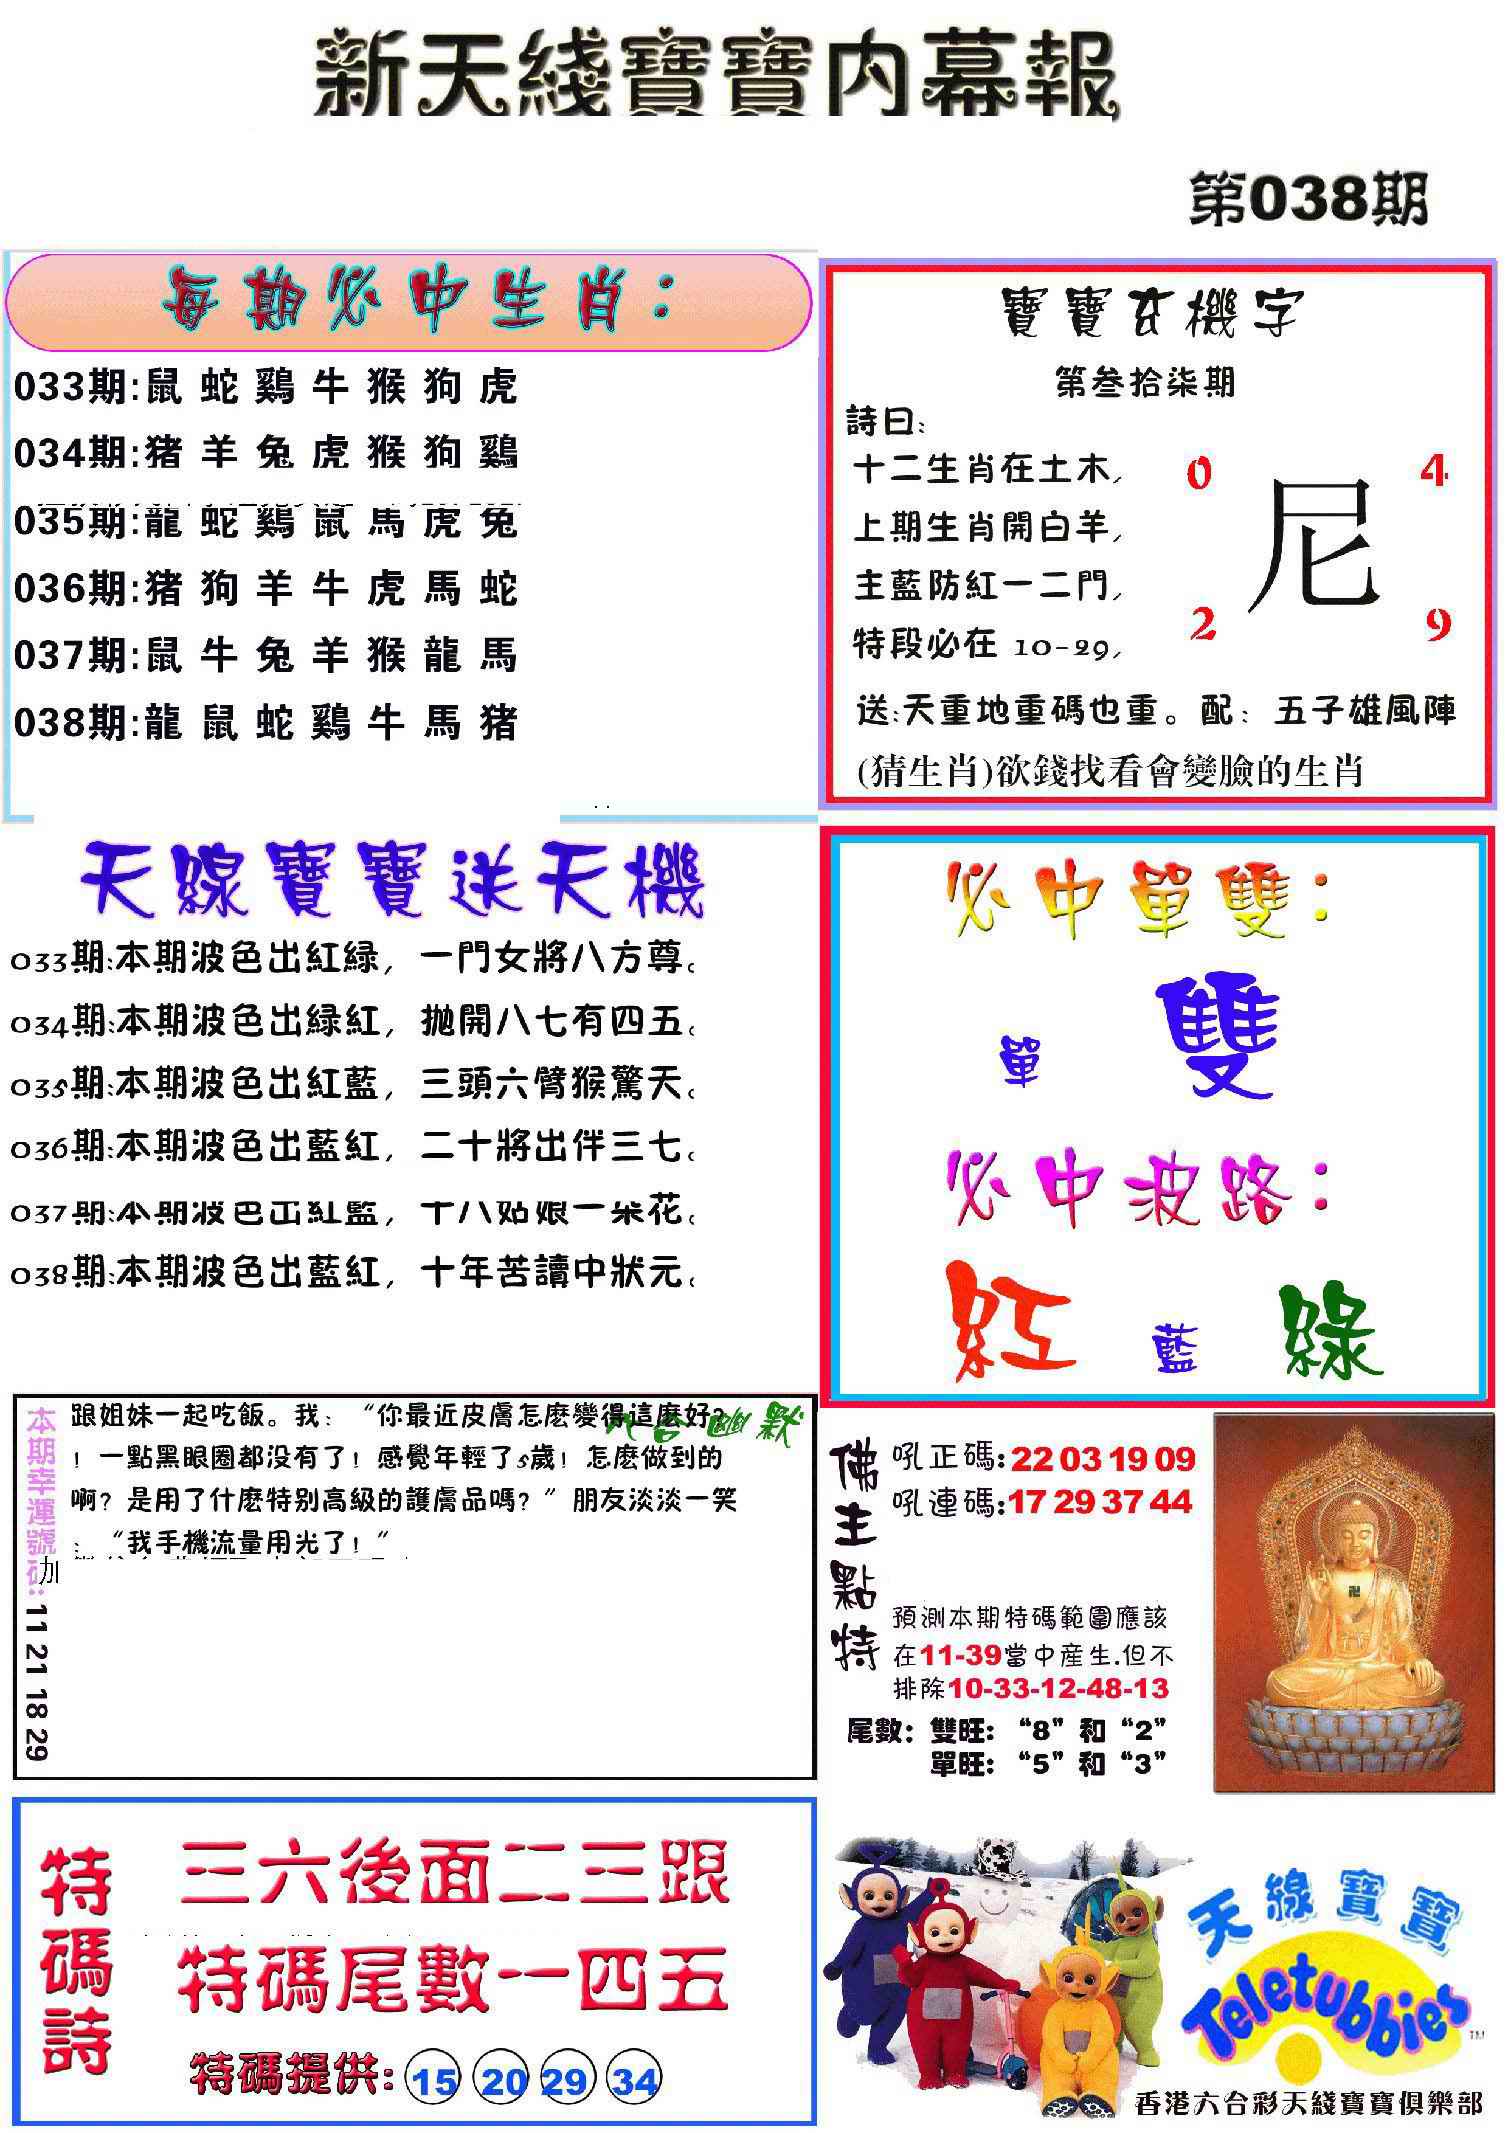 新天綫寶寶内幕報
第038期
每期必中生肖:
033期:鼠 蛇 鷄 牛 猴 狗 虎
034期:猪 羊 兔 虎 猴 狗 鷄
035期:龍 蛇 鷄 鼠 馬 虎 兔
036期:猪 狗 羊 牛 虎 馬 蛇
037期:鼠 牛 兔 羊 猴 龍 馬
038期:龍 鼠 蛇 鷄 牛 馬 猪
寶寶玄機字
第叁拾柒期
詩曰:
十二生肖在土木,
上期生肖開白羊,
主藍防紅一二門,
特段必在 10-29,
0 4
尼
2 9
送:天重地重碼也重。配: 五子雄風陣
(猜生肖)欲錢找看會變臉的生肖
天線寶寶送天機
033期:本期波色出紅緑, 一門女將八方尊。
034期:本期波色出緑紅, 拋開八七有四五。
035期:本期波色出紅藍, 三頭六臂猴驚天。
036期:本期波色出藍紅, 二十將出伴三七。
037期:本期波色出紅藍, 十八姑娘一朵花。
038期:本期波色出藍紅, 十年苦讀中狀元。
必中單雙:
單 雙
必中波路:
紅 藍 綠
六合幽默
跟姐妹一起吃飯。我: “你最近皮膚怎麽變得這麽好?
! 一點黑眼圈都没有了! 感覺年輕了5歲! 怎麽做到的
啊? 是用了什麽特别高級的護膚品嗎? ” 朋友淡淡一笑
: “我手機流量用光了! ”
本期幸運號碼: 11 21 18 29
佛主點特
吼正碼:22 03 19 09
吼連碼:17 29 37 44
預測本期特碼範圍應該
在11-39當中産生.但不
排除10-33-12-48-13
尾數: 雙旺: “8” 和 “2”
單旺: “5” 和 “3”
特碼詩
三六後面二三跟
特碼尾數一四五
特碼提供: 15 20 29 34
天線寶寶
Teletubbies TM
香港六合彩天綫寶寶俱樂部